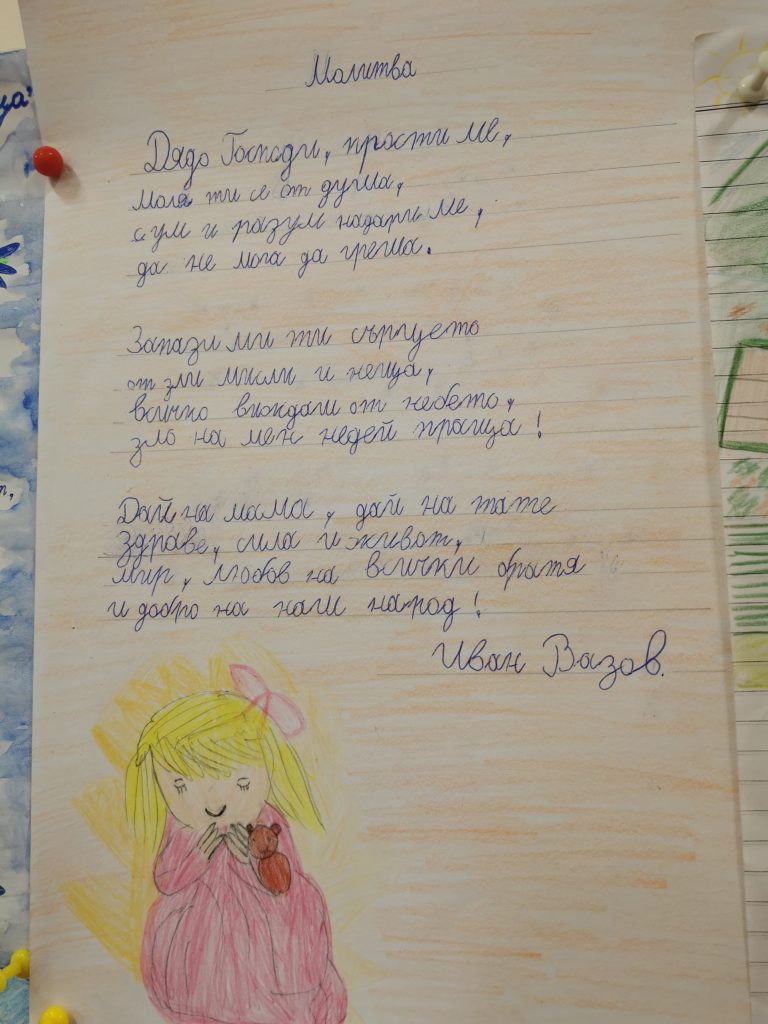 Молитва
Дядо Господи, прости ме,
моля ти се от душа,
с ум и разум надари ме,
да не мога да греша.
Запази ми ти сърцето
от зли мисли и неща,
всичко виждаш от небето,
зло на мен недей праща!
Дай на мама, дай на тате
здраве, сила и живот,
мир, любов на всички братя
и добро на наш народ!
Иван Вазов.